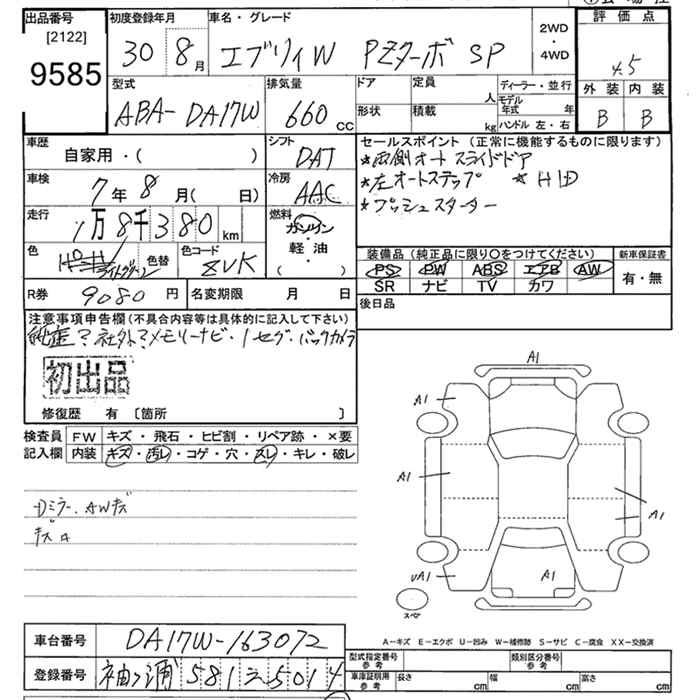 出品番号
[2122]
9585
初度登録年月
30 8月
車名・グレード
エブリィW PZターボ SP
2WD
・
4WD
評価点
4.5
外装 内装
B B
型式
ABA-DA17W
排気量
660 CC
ドア
形状
定員
人
積載
kg
ディーラー・並行
モデル年式 年
ハンドル 左・右
車歴
自家用・( )
シフト
DAT
車検
7年8月( 日)
冷房
AAC
走行
1万8千380km
燃料
ガソリン
軽・油
( )
色
ライトグリーン
色替
色コード
ZVK
R券
9080円
名変期限 月 日
セールスポイント(正常に機能するものに限ります)
*両側オートスライドドア
*左オートステップ *HID
*プッシュスターター
装備品(純正品に限り〇をつけてください)
PS PW ABS エアB AW
SR ナビ TV カワ
新車保証書
有・無
後日品
注意事項申告欄(不具合内容等は具体的に記入して下さい)
純正?社外?メモリーナビ・1セグ・バックカメラ
初出品
修復歴 有 〔箇所 〕
検査員記入欄
FW キズ・飛石・ヒビ割・リペア跡・×要
内装 キズ・汚レ・コゲ・穴・スレ・キレ・破レ
Dミラー、AWキズ
キズ
A1
A1
A1
A1
UA1
A1
スペア
A-キズ E-エクボ U-凹み W-補修跡 S-サビ C-腐食 XX-交換済
車台番号
DA17W-163072
登録番号
袖ヶ浦 581 モ 5014
型式指定番号
参考
類別区分番号
参考
車庫証明用
参考
長さ cm 幅 cm 高さ cm